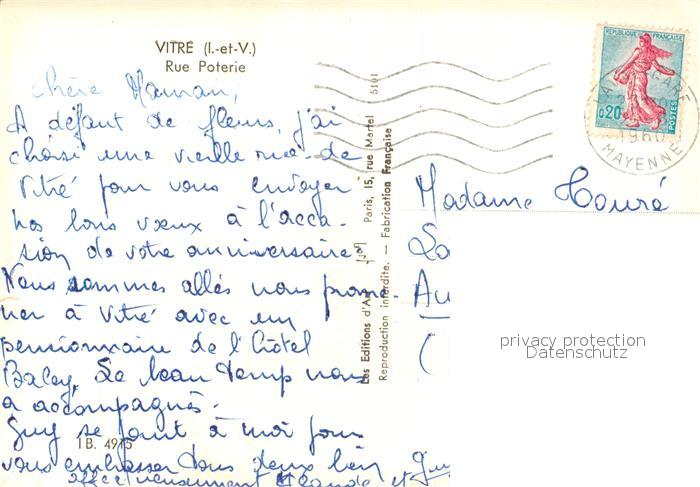 VITRÉ (I.-et-V.)
Rue Poterie
Chère Maman,
A défaut de fleurs, j'ai
choisi une vieille rue de
Vitré pour vous envoyer
nos bons vœux à l'occa-
sion de votre anniversaire.
Nous sommes allés nous prome-
ner à Vitré avec un
pensionnaire de l'hôtel
Le beau temps nous
a accompagnés.
Guy se joint à moi pour
vous embrasser tous deux bien
affectueusement Claude et Guy
I B. 4915
5101
Les Editions d'Art Paris, 15, rue Martel
Reproduction interdite. — Fabrication Française
REPUBLIQUE FRANÇAISE
0,20
POSTES
1960
MAYENNE
Madame Touré
Au
(
privacy protection
Datenschutz